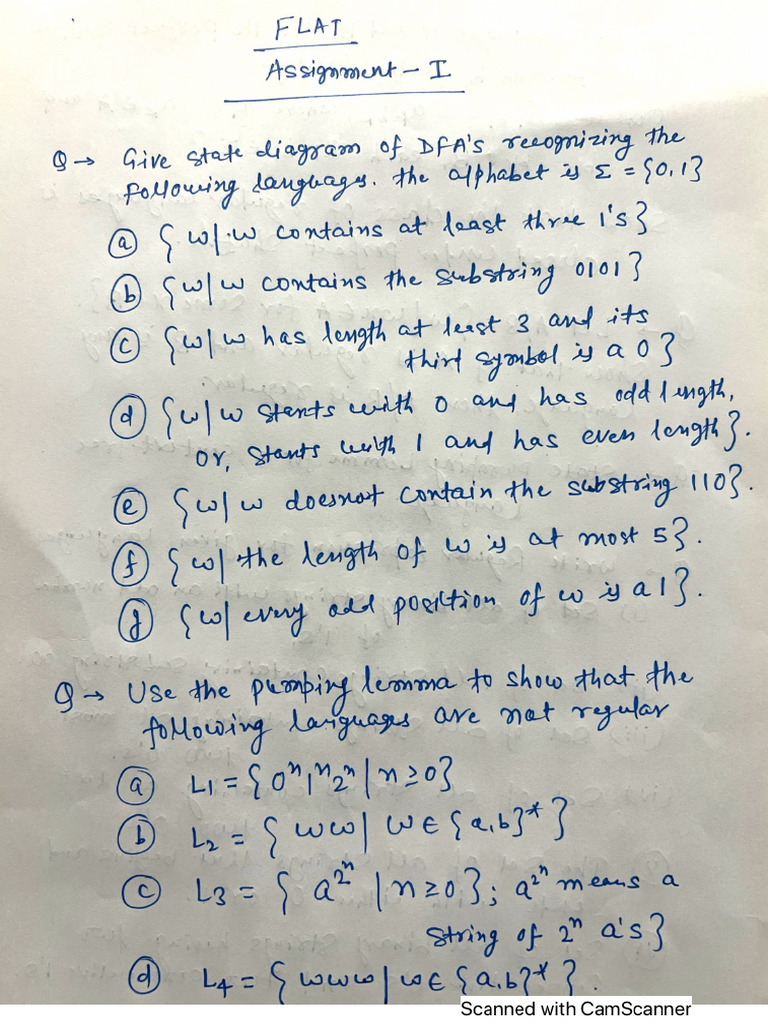 FLAT
Assignment - I
Q → Give state diagram of DFA's recognizing the
following languages. the alphabet is Σ = {0,1}
(a) {w|w contains at least three 1's}
(b) {w|w contains the substring 0101}
(c) {w|w has length at least 3 and its
third symbol is a 0}
(d) {w|w starts with 0 and has odd length,
or, starts with 1 and has even length}.
(e) {w|w doesnot contain the substring 110}.
(f) {w| the length of w is at most 5}.
(g) {w| every odd position of w is a 1}.
Q → Use the pumping lemma to show that the
following languages are not regular
(a) L₁ = {0ⁿ1ⁿ2ⁿ | n ≥ 0}
(b) L₂ = {ww | w ∈ {a,b}*}
(c) L₃ = {a^2ⁿ | n ≥ 0}; a^2ⁿ means a
string of 2ⁿ a's}
(d) L₄ = {www | w ∈ {a,b}*}.
Scanned with CamScanner